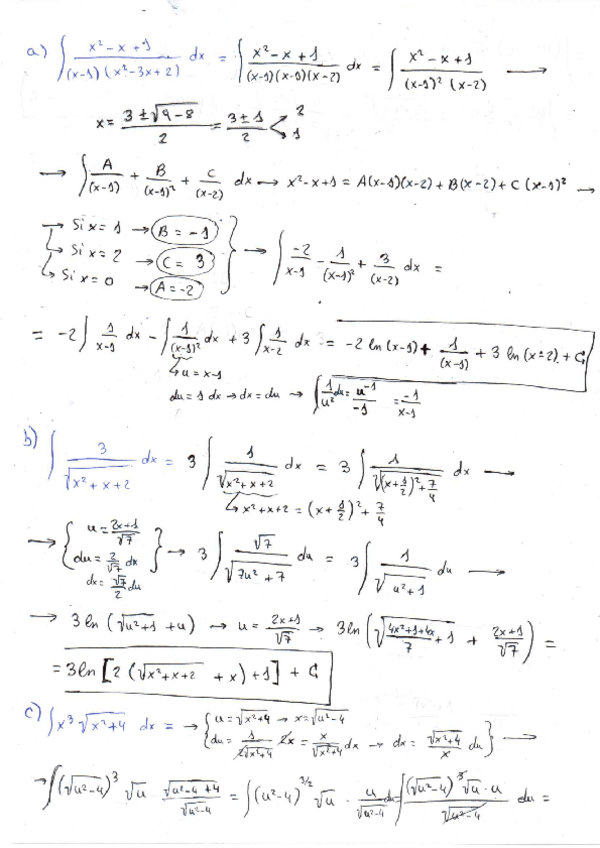 a) ∫ (x² - x + 1)/((x-1)(x² - 3x + 2)) dx = ∫ (x² - x + 1)/((x-1)(x-1)(x-2)) dx = ∫ (x² - x + 1)/((x-1)² (x-2)) →
x = (3 ± √(9-8))/2 = (3 ± 1)/2 < 2, 1
→ ∫ A/(x-1) + B/(x-1)² + C/(x-2) dx → x² - x + 1 = A(x-1)(x-2) + B(x-2) + C(x-1)² →
→ Si x = 1 → B = -1
→ Si x = 2 → C = 3
→ Si x = 0 → A = -2 } → ∫ -2/(x-1) - 1/(x-1)² + 3/(x-2) dx =
= -2 ∫ 1/(x-1) dx - ∫ 1/(x-1)² dx + 3 ∫ 1/(x-2) dx = -2 ln(x-1) + 1/(x-1) + 3 ln(x-2) + C
↳ u = x-1
du = 1 dx → dx = du → ∫ 1/u² du = u⁻¹/-1 = -1/(x-1)
b) ∫ 3/√(x² + x + 2) dx = 3 ∫ 1/√(x² + x + 2) dx = 3 ∫ 1/√((x + 1/2)² + 7/4) dx →
↳ x² + x + 2 = (x + 1/2)² + 7/4
→ { u = (2x+1)/√7
du = 2/√7 dx
dx = √7/2 du } → 3 ∫ √7/√(7u² + 7) du = 3 ∫ 1/√(u² + 1) du →
→ 3 ln(√(u² + 1) + u) → u = (2x+1)/√7 → 3 ln(√((4x² + 1 + 4x)/7 + 1) + (2x+1)/√7) =
= 3 ln[2(√(x² + x + 2) + x) + 1] + C
c) ∫ x³ √(x² + 4) dx = → { u = √(x² + 4) → x = √(u² - 4)
du = 1/(2√(x² + 4)) 2x = x/√(x² + 4) dx → dx = √(x² + 4)/x du } →
→ ∫ (√(u² - 4))³ √u √(u² - 4 + 4)/√(u² - 4) = ∫ (u² - 4)^(3/2) √u · u/√(u² - 4) du = ∫ (√(u² - 4))³ √u · u/√(u² - 4) du =